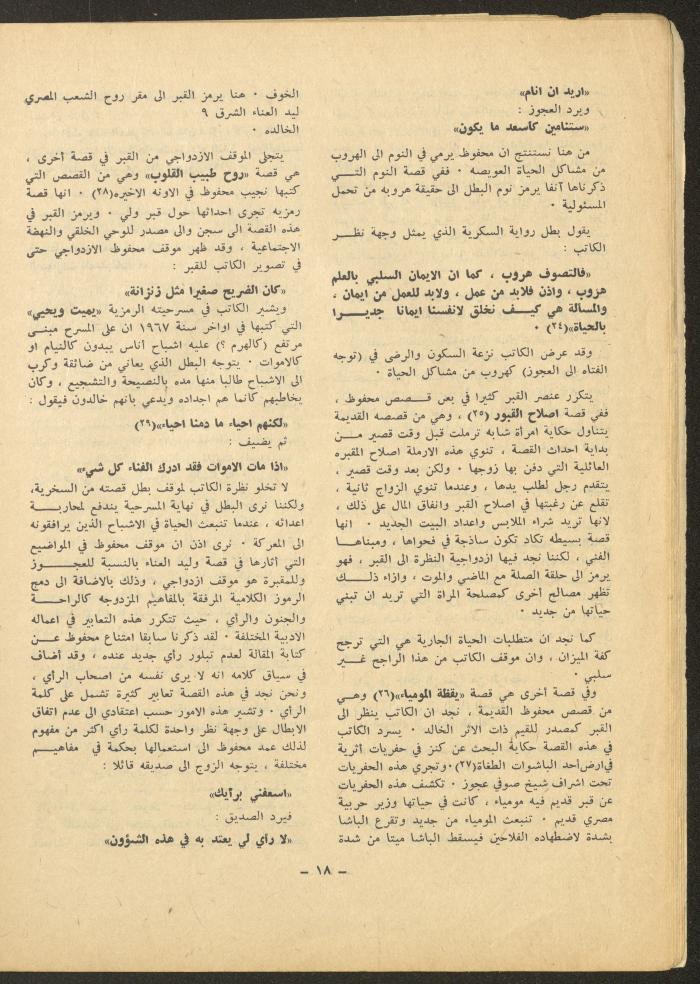 «اريد ان انام»
ويرد العجوز :
«ستنامين كأسعد ما يكون»
من هنا نستنتج ان محفوظ يرمي في النوم الى الهروب
من مشاكل الحياة العويصه ٠ ففي قصة النوم التـــي
ذكرناها آنفا يرمز نوم البطل الى حقيقة هروبه من تحمل
المسئولية ٠
يقول بطل رواية السكرية الذي يمثل وجهة نظــر
الكاتب :
«فالتصوف هروب ، كما ان الايمان السلبي بالعلم
هروب ، واذن فلابد من عمل ، ولابد للعمل من ايمان ،
والمسألة هي كيــف نخلق لانفسنا ايمانا جديـــرا
بالحياة»(٢٤) ٠
وقد عرض الكاتب نزعة السكون والرضى في (توجه
الفتاه الى العجوز) كهروب من مشاكل الحياة ٠
يتكرر عنصر القبر كثيرا في بعض قـــصص محفوظ ،
ففي قصة اصلاح القبور (٢٥) ، وهي من قصصه القديمة
يتناول حكاية امرأة شابه ترملت قبل وقت قصير مـــن
بداية احداث القصة ، تنوي هذه الارملة اصلاح المقبره
العائلية التي دفن بها زوجها ٠ ولكن بعد وقت قصير ،
يتقدم رجل لطلب يدها ، وعندما تنوي الزواج ثانية ،
تقلع عن رغبتها في اصلاح القبر وانفاق المال على ذلك ،
لانها تريد شراء الملابس واعداد البيت الجديد ٠ انها
قصة بسيطه تكاد تكون ساذجة في فحواها ، ومبناهـا
الفني ، لكننا نجد فيها ازدواجية النظرة الى القبر ، فهو
يرمز الى حلقة الصلة مع الماضي والموت ، وازاء ذلــــك
تظهر مصالح أخرى كمصلحة المرأة التي تريد ان تبني
حياتها من جديد ٠
كما نجد ان متطلبات الحياة الجارية هي التي ترجح
كفة الميزان ، وان موقف الكاتب من هذا الراجح غـــير
سلبي ٠
وفي قصة اخرى هي قصة «يقظة المومياء»(٢٦) وهــي
من قصص محفوظ القديمة ، نجد ان الكاتب ينظر الى
القبر كمصدر للقيم ذات الاثر الخالد ٠ يسرد الكاتب
في هذه القصة حكاية البحث عن كنز في حفريات أثرية
في ارض أحد الباشوات الطغاة(٢٧)٠ وتجري هذه الحفريات
تحت اشراف شيخ صوفي عجوز ٠ تكشف هذه الحفريات
عن قبر قديم فيه مومياء ، كانت في حياتها وزير حربية
مصري قديم ٠ تنبعث المومياء من جديد وتقرع الباشا
بشدة لاضطهاده الفلاحين فيسقط الباشا ميتا من شدة
الخوف ٠ هنا يرمز القبر الى مقر روح الشعب المصري
ليد العناء الشرق ٩
الخالده ٠
يتجلى الموقف الازدواجي من القبر في قصة أخرى ،
هي قصة «روح طبيب القلوب» وهي من القصص التي
كتبها نجيب محفوظ في الاونه الاخيره(٢٨) ٠ انها قصة
رمزيه تجرى احداثها حول قبر ولي ٠ ويرمز القبر في
هذه القصة الى سجن والى مصدر للوحي الخلقي والنهضة
الاجتماعية ، وقد ظهر موقف محفوظ الازدواجي حتى
في تصوير الكاتب للقبر :
«كان الضريح صغيرا مثل زنزانة»
ويشير الكاتب في مسرحيته الرمزية «يميت ويحيي»
التي كتبها في اواخر سنة ١٩٦٧ ان على المسرح مبنـى
مرتفع (كالهرم ؟) عليه اشباح أناس يبدون كالنيام او
كالاموات ٠ يتوجه البطل الذي يعاني من ضائقة وكرب
الى الاشباح طالبا منها مده بالنصيحة والتشجيع ، وكان
يخاطبهم كأنما هم اجداده ويدعي بأنهم خالدون فيقول :
«لكنهم احياء ما دمنا احياء»(٢٩)
ثم يضيف :
«اذا مات الاموات فقد ادرك الفناء كل شيء»
لا تخلو نظرة الكاتب لموقف بطل قصته من السخرية،
ولكننا نرى البطل في نهاية المسرحية يندفع لمحاربـــة
اعدائه ، عندما تنبعث الحياة في الاشباح الذين يرافقونه
الى المعركة ٠ نرى اذن ان موقف محفوظ في المواضيع
التي أثارها في قصة وليد العناء بالنسبة للعجـــوز
وللمقبرة هو موقف ازدواجي ، وذلك بالاضافة الى دمج
الرموز الكلامية المرفقة بالمفاهيم المزدوجه كالراحـــة
والجنون والرأي ، حيث تتكرر هذه التعابير في اعماله
الادبية المختلفة ٠ لقد ذكرنا سابقا امتناع محفوظ عـــن
كتابة المقالة لعدم تبلور رأي جديد عنده ، وقد أضاف
في سياق كلامه انه لا يرى نفسه من اصحاب الرأي ،
ونحن نجد في هذه القصة تعابير كثيرة تشمل على كلمة
الرأي ٠ وتشير هذه الامور حسب اعتقادي الى عدم اتفاق
الابطال على وجهة نظر واحدة لكلمة رأي اكثر من مفهوم
لذلك عمد محفوظ الى استعمالها بحكمة في مفاهيـــم
مختلفة ، يتوجه الزوج الى صديقه قائلا :
«اسعفني برأيك»
فيرد الصديق :
«لا رأي لي يعتد به في هذه الشؤون»
– ١٨ –